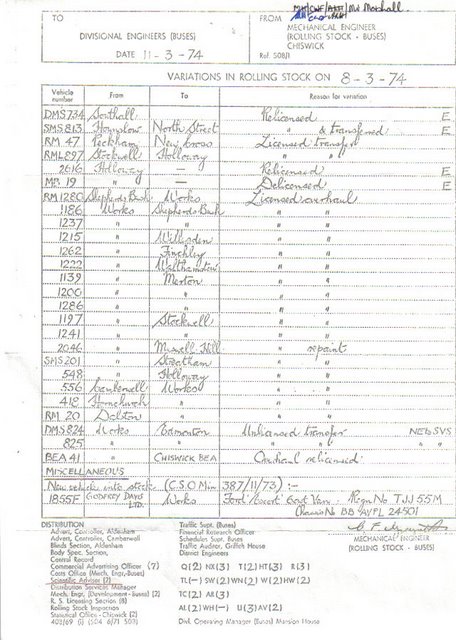 TO
FROM
MH/CWF/AH/Mr Marshall
DIVISIONAL ENGINEERS (BUSES)
MECHANICAL ENGINEER
(ROLLING STOCK - BUSES)
CHISWICK
DATE 11-3-74
Ref. 508/1
VARIATIONS IN ROLLING STOCK ON 8-3-74
Vehicle number From To Reason for variation
DMS 734 Southall Relicensed E
SMS 813 Hounslow North Street " & transferred E
RM 47 Peckham New Cross Licensed transfer
RML 897 Stockwell Holloway " "
2616 Holloway — Relicensed E
MB 19 " — Delicensed E
RM 1280 Shepherds Bush Works Licensed overhaul
1186 Works Shepherds Bush " "
1237 " " " "
1215 " Willesden " "
1262 " Finchley " "
1222 " Walthamstow " "
1139 " Merton " "
1200 " " " "
1286 " " " "
1197 " Stockwell " "
1241 " " " "
2046 " Muswell Hill " repaint
SMS 201 " Streatham " "
548 " Holloway " "
556 Camberwell Works " "
418 Hornchurch " " "
RM 20 Dalston " " "
DMS 824 Works Edmonton Unlicensed transfer NEW SVS
825 " " " " "
BEA 41 " CHISWICK BEA Overhaul relicensed
MISCELLANEOUS
New vehicle into stock (C.S.O Mim 387/11/73) :-
1855F GODFREY DAVIS LTD. Works Ford 'Escort' 6cwt Van. Regn No TJJ 55M
Chassis No BB AVPL 24501
MECHANICAL ENGINEER
(ROLLING STOCK - BUSES)
DISTRIBUTION
Advert. Controller, Aldenham
Advert. Controller, Camberwell
Blinds Section, Aldenham
Body Spec. Section,
Central Record
Commercial Advertising Officer (7)
Costs Office (Mech. Engr, Buses)
Scientific Adviser (2)
Distribution Services Manager
Mech. Engr. (Development - Buses) (2)
R. S. Licensing Section (8)
Rolling Stock Inspection
Statistical Office - Chiswick (2)
403/69 (1) (504 6/71 508)
Traffic Supt. (Buses)
Financial Research Officer
Schedules Supt. Buses
Traffic Auditor, Griffith House
District Engineers
Q(2) NX(3) T(2) HT(3) R(3)
TL(-) SW(2) WN(2) W(2) HW(2)
TC(2) AR(3)
AL(2) WH(-) U(3) AV(2)
Divl. Operating Manager (Buses) Mansion House